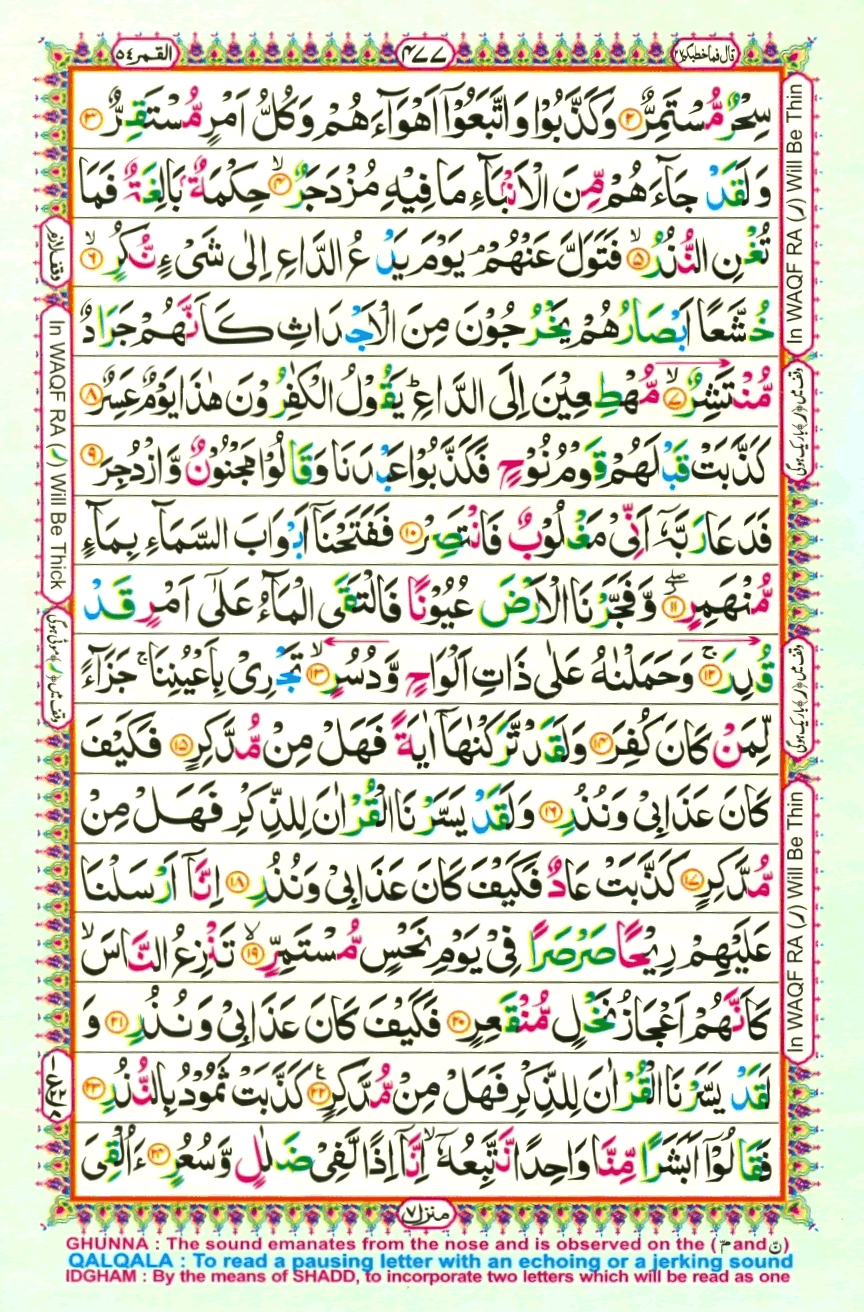 القمر ٥٤
٤٧٧
قال فما خطبكم ٢٧
سِحْرٌ مُّسْتَمِرٌّ ﴿۲﴾ وَكَذَّبُوْا وَاتَّبَعُوْۤا اَهْوَآءَهُمْ وَكُلُّ اَمْرٍ مُّسْتَقِرٌّ ﴿۳﴾
وَلَقَدْ جَآءَهُمْ مِّنَ الْاَنْۢبَآءِ مَا فِيْهِ مُزْدَجَرٌ ۙ﴿۴﴾ حِكْمَةٌۢ بَالِغَةٌ فَمَا
تُغْنِ النُّذُرُ ۙ﴿۵﴾ فَتَوَلَّ عَنْهُمْ ۘ يَوْمَ يَدْعُ الدَّاعِ اِلٰى شَیْءٍ نُّكُرٍ ۙ﴿۶﴾
خُشَّعًا اَبْصَارُهُمْ يَخْرُجُوْنَ مِنَ الْاَجْدَاثِ كَاَنَّهُمْ جَرَادٌ
مُّنْتَشِرٌ ۙ﴿۷﴾ مُّهْطِعِيْنَ اِلَى الدَّاعِ ؕ يَقُوْلُ الْكٰفِرُوْنَ هٰذَا يَوْمٌ عَسِرٌ ﴿۸﴾
كَذَّبَتْ قَبْلَهُمْ قَوْمُ نُوْحٍ فَكَذَّبُوْا عَبْدَنَا وَقَالُوْا مَجْنُوْنٌ وَّازْدُجِرَ ﴿۹﴾
فَدَعَا رَبَّهٗۤ اَنِّیْ مَغْلُوْبٌ فَانْتَصِرْ ﴿۱۰﴾ فَفَتَحْنَاۤ اَبْوَابَ السَّمَآءِ بِمَآءٍ
مُّنْهَمِرٍ ۖ﴿۱۱﴾ وَّفَجَّرْنَا الْاَرْضَ عُيُوْنًا فَالْتَقَى الْمَآءُ عَلٰۤى اَمْرٍ قَدْ
قُدِرَ ۚ﴿۱۲﴾ وَحَمَلْنٰهُ عَلٰى ذَاتِ اَلْوَاحٍ وَّدُسُرٍ ۙ﴿۱۳﴾ تَجْرِیْ بِاَعْيُنِنَا ۚ جَزَآءً
لِّمَنْ كَانَ كُفِرَ ﴿۱۴﴾ وَلَقَدْ تَّرَكْنٰهَاۤ اٰيَةً فَهَلْ مِنْ مُّدَّكِرٍ ﴿۱۵﴾ فَكَيْفَ
كَانَ عَذَابِیْ وَنُذُرِ ﴿۱۶﴾ وَلَقَدْ يَسَّرْنَا الْقُرْاٰنَ لِلذِّكْرِ فَهَلْ مِنْ
مُّدَّكِرٍ ﴿۱۷﴾ كَذَّبَتْ عَادٌ فَكَيْفَ كَانَ عَذَابِیْ وَنُذُرِ ﴿۱۸﴾ اِنَّاۤ اَرْسَلْنَا
عَلَيْهِمْ رِيْحًا صَرْصَرًا فِیْ يَوْمِ نَحْسٍ مُّسْتَمِرٍّ ۙ﴿۱۹﴾ تَنْزِعُ النَّاسَ ۙ
كَاَنَّهُمْ اَعْجَازُ نَخْلٍ مُّنْقَعِرٍ ﴿۲۰﴾ فَكَيْفَ كَانَ عَذَابِیْ وَنُذُرِ ﴿۲۱﴾ وَ
لَقَدْ يَسَّرْنَا الْقُرْاٰنَ لِلذِّكْرِ فَهَلْ مِنْ مُّدَّكِرٍ ﴿۲۲﴾ كَذَّبَتْ ثَمُوْدُ بِالنُّذُرِ ﴿۲۳﴾
فَقَالُوْۤا اَبَشَرًا مِّنَّا وَاحِدًا نَّتَّبِعُهٗۤ ۙ اِنَّاۤ اِذًا لَّفِیْ ضَلٰلٍ وَّسُعُرٍ ﴿۲۴﴾ ءَاُلْقِیَ
In WAQF RA (ر) Will Be Thin
وقف میں (ر) باریک ہوگی
وقف میں (ر) باریک ہوگی
In WAQF RA (ر) Will Be Thin
وقف لازم
In WAQF RA (ر) Will Be Thick
وقف میں (ر) موٹی ہوگی
منزل ٧
GHUNNA : The sound emanates from the nose and is observed on the (مّ and نّ)
QALQALA : To read a pausing letter with an echoing or a jerking sound
IDGHAM : By the means of SHADD, to incorporate two letters which will be read as one